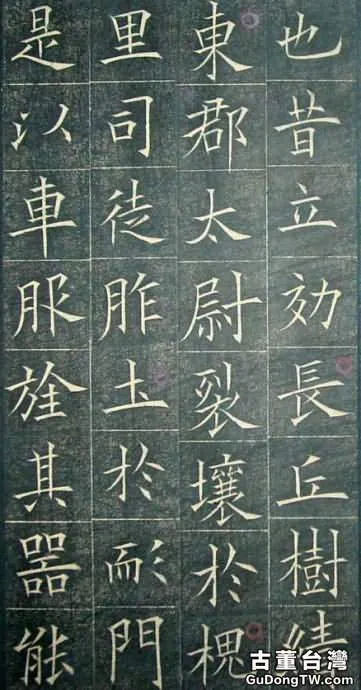 也昔立効長丘樹績
東郡太尉裂壤於槐
里司徒胙土於耏門
是以車服旌其器能
古董台灣
GuDongTW.com